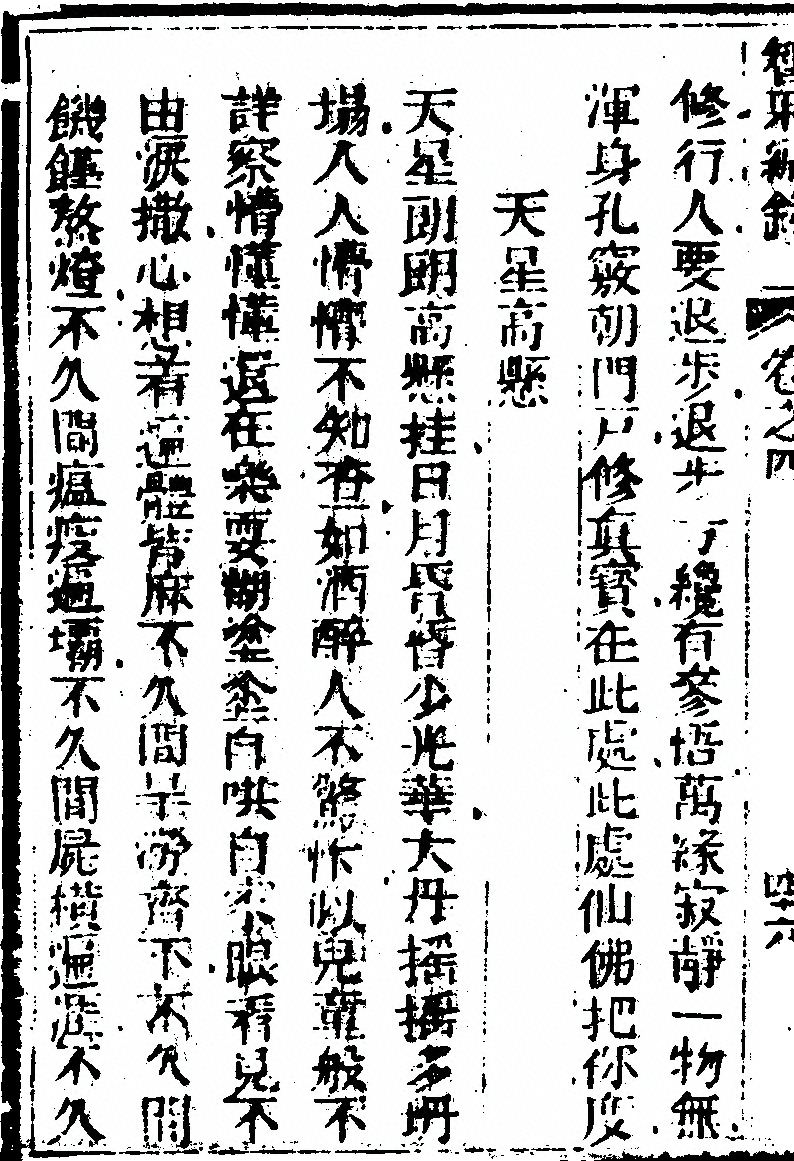 卷之四 四十六
修行人要退步退步方纔有參悟萬緣寂靜一物無
渾身孔竅朝門戶修真實在此處此處仙佛把你度
天星高懸
天星朗朗高懸挂日月昏昏少光華大丹搖搖多坍
塌人人懵懵不知春如酒醉人不驚怍似兒童般不
詳察懵懂懂還在樂耍糊塗塗自哄自家眼看見不
由淚撒心想着遍體皆麻不久間旱澇齊下不久間
饑饉熬燎不久間瘟疫遍壩不久間屍橫遍涯不久